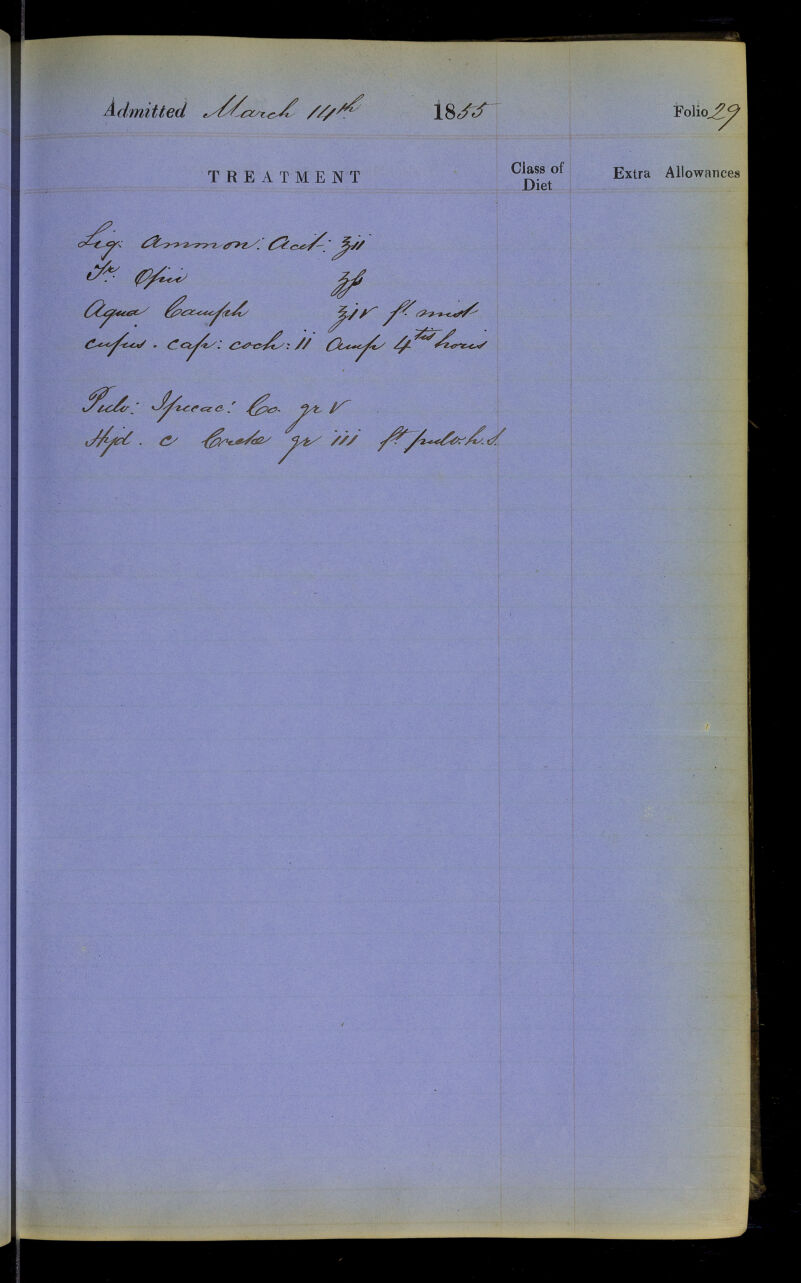 Admitted March 14th 1855 Folio 29
TREATMENT Class of Diet Extra Allowances
Liq. Ammon: Acet: ʒii
Tr. Opii ʒß
Aqua Camph ʒiv ft. mist
cujus. cap: coch: ii Amp 4tis horis
Pulv: Ipecac: Co. gr V
Hyd. c Creta gr iii ft pulv. h.s.